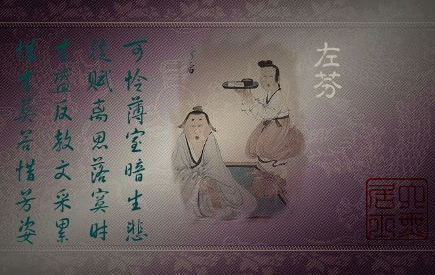 左芬
可怜薄室暗生悲
徒赋离思落寞时
才盛反教文采累
惜才莫若惜芳姿